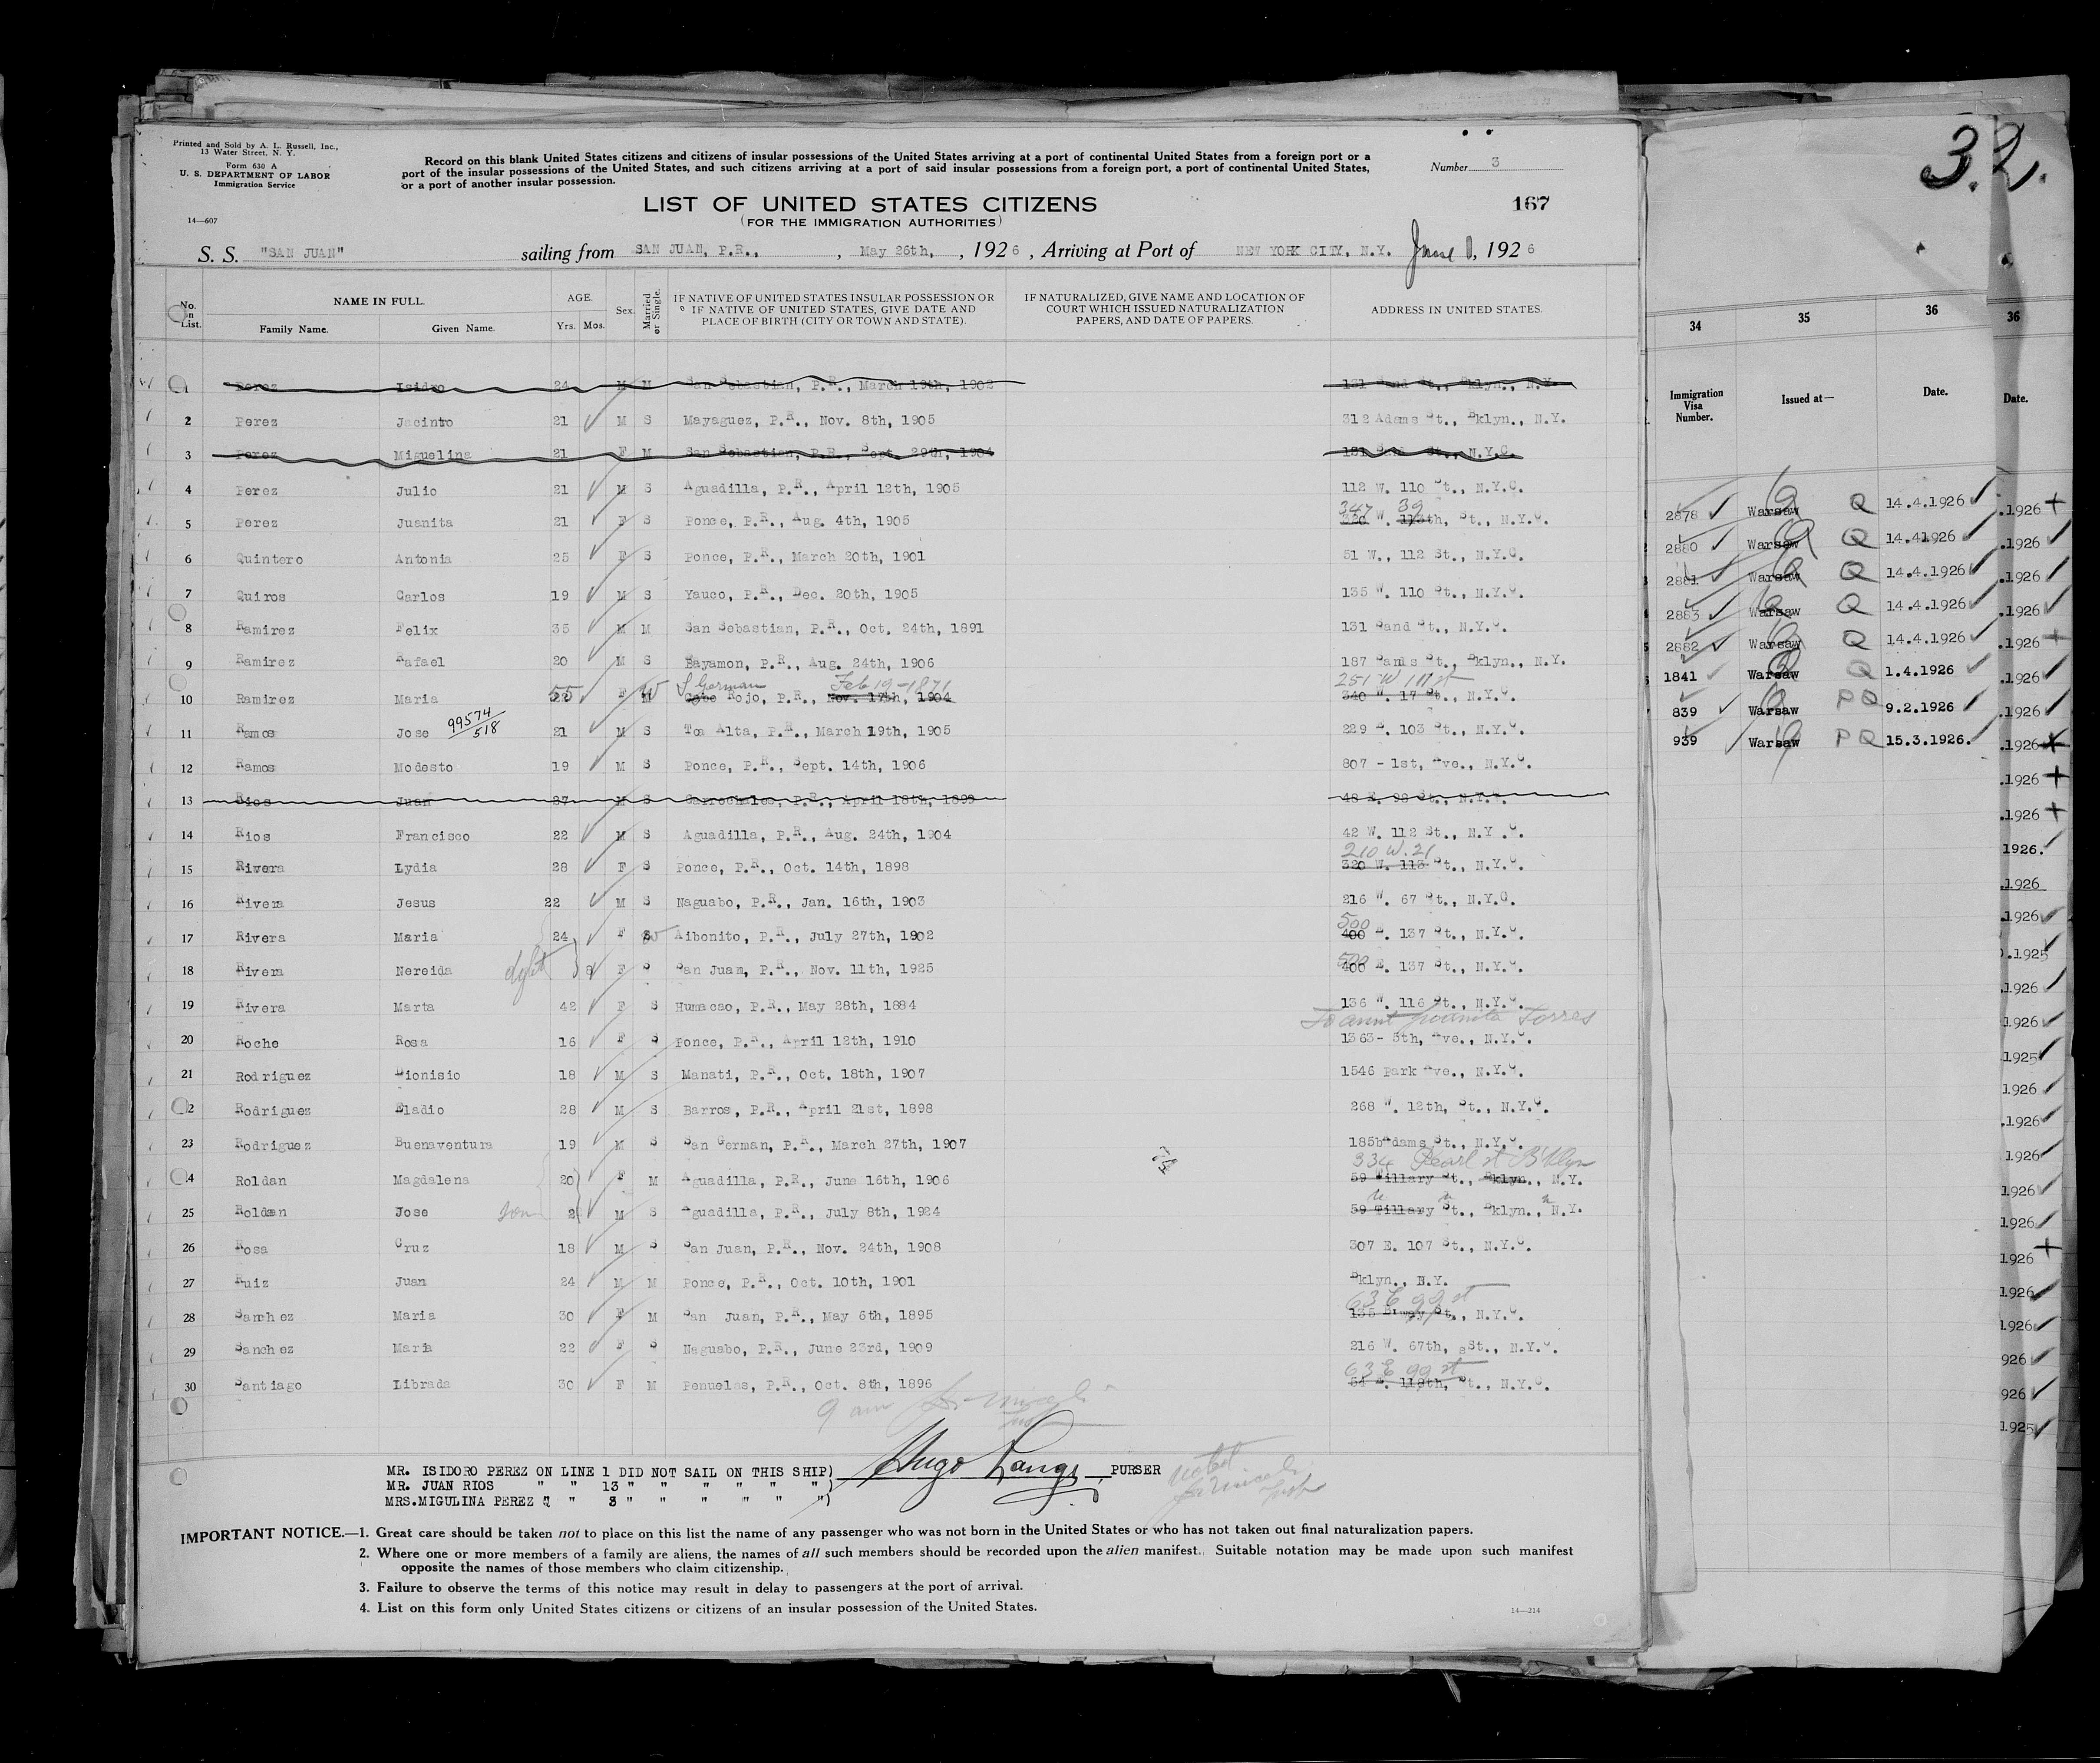 Printed and Sold by A. L. Russell, Inc.,
13 Water Street, N. Y.
Form 630 A
U. S. DEPARTMENT OF LABOR
Immigration Service
14—607
Record on this blank United States citizens and citizens of insular possessions of the United States arriving at a port of continental United States from a foreign port or a
port of the insular possessions of the United States, and such citizens arriving at a port of said insular possessions from a foreign port, a port of continental United States,
or a port of another insular possession.
Number 3
LIST OF UNITED STATES CITIZENS
(FOR THE IMMIGRATION AUTHORITIES)
167
S. S. "SAN JUAN" sailing from SAN JUAN, P.R., , May 26th, , 1926 , Arriving at Port of NEW YORK CITY, N.Y. June 1, 1926
No. on List. NAME IN FULL. Family Name. Given Name. AGE. Yrs. Mos. Sex. Married or Single. IF NATIVE OF UNITED STATES INSULAR POSSESSION OR IF NATIVE OF UNITED STATES, GIVE DATE AND PLACE OF BIRTH (CITY OR TOWN AND STATE). IF NATURALIZED, GIVE NAME AND LOCATION OF COURT WHICH ISSUED NATURALIZATION PAPERS, AND DATE OF PAPERS. ADDRESS IN UNITED STATES.
1 Perez Isidro 24 M M San Sebastian, P.R., March 19th, 1902 131 Sand St., Bklyn., N.Y.
2 Perez Jacinto 21 M S Mayaguez, P.R., Nov. 8th, 1905 312 Adams St., Bklyn., N.Y.
3 Perez Miguelina 21 F M San Sebastian, P.R., Sept. 29th, 1904 131 Sand St., N.Y.C.
4 Perez Julio 21 M S Aguadilla, P.R., April 12th, 1905 112 W. 110 St., N.Y.C.
347 39
5 Perez Juanita 21 F S Ponce, P.R., Aug. 4th, 1905 320 W. 113th, St., N.Y.C.
6 Quintero Antonia 25 F S Ponce, P.R., March 20th, 1901 51 W., 112 St., N.Y.C.
7 Quiros Carlos 19 M S Yauco, P.R., Dec. 20th, 1905 135 W. 110 St., N.Y.C.
8 Ramirez Felix 35 M M San Sebastian, P.R., Oct. 24th, 1891 131 Sand St., N.Y.C.
9 Ramirez Rafael 20 M S Bayamon, P.R., Aug. 24th, 1906 187 Sands St., Bklyn., N.Y.
55 W S German Feb 19-1871 251 W 111 st
10 Ramirez Maria F M Cabo Rojo, P.R., Nov. 17th, 1904 340 W. 17 St., N.Y.C.
11 Ramos Jose 99574/518 21 M S Toa Alta, P.R., March 19th, 1905 229 E. 103 St., N.Y.C.
12 Ramos Modesto 19 M S Ponce, P.R., Sept. 14th, 1906 807 - 1st, Ave., N.Y.C.
13 Rios Juan 27 M S Garrochales, P.R., April 18th, 1899 48 E. 98 St., N.Y.C.
14 Rios Francisco 22 M S Aguadilla, P.R., Aug. 24th, 1904 42 W. 112 St., N.Y.C.
210 W. 21
15 Rivera Lydia 28 F S Ponce, P.R., Oct. 14th, 1898 320 W. 113 St., N.Y.C.
16 Rivera Jesus 22 M S Naguabo, P.R., Jan. 16th, 1903 216 W. 67 St., N.Y.C.
500
17 Rivera Maria 24 F S W Aibonito, P.R., July 27th, 1902 400 E. 137 St., N.Y.C.
500
18 Rivera Nereida 8 F S San Juan, P.R., Nov. 11th, 1925 400 E. 137 St., N.Y.C.
19 Rivera Marta 42 F S Humacao, P.R., May 28th, 1884 136 W. 116 St., N.Y.C.
To aunt Juanita Torres
20 Roche Rosa 16 F S Ponce, P.R., April 12th, 1910 1363- 5th, Ave., N.Y.C.
21 Rodriguez Dionisio 18 M S Manati, P.R., Oct. 18th, 1907 1546 Park Ave., N.Y.C.
22 Rodriguez Eladio 28 M S Barros, P.R., April 21st, 1898 268 W. 12th, St., N.Y.C.
23 Rodriguez Buenaventura 19 M S San German, P.R., March 27th, 1907 185bAdams St., N.Y.C.
334 Pearl st B'klyn
24 Roldan Magdalena 20 F M Aguadilla, P.R., June 16th, 1906 59 Tillary St., Bklyn., N.Y.
25 Roldan Jose son 2 M S Aguadilla, P.R., July 8th, 1924 59 Tillary St., Bklyn., N.Y.
26 Rosa Cruz 18 M S San Juan, P.R., Nov. 24th, 1908 307 E. 107 St., N.Y.C.
27 Ruiz Juan 24 M M Ponce, P.R., Oct. 10th, 1901 Bklyn., N.Y.
63 E 99 st
28 Sanchez Maria 30 F M San Juan, P.R., May 6th, 1895 135 St., N.Y.C.
29 Sanchez Maria 22 F S Naguabo, P.R., June 23rd, 1909 216 W. 67th, sSt., N.Y.C.
63 E 99 st
30 Santiago Librada 30 F M Penuelas, P.R., Oct. 8th, 1896 54 E. 118th, St., N.Y.C.
9 am
MR. ISIDORO PEREZ ON LINE 1 DID NOT SAIL ON THIS SHIP) Hugo Lange, PURSER
MR. JUAN RIOS " " 13 " " " " " ")
MRS.MIGULINA PEREZ " " 3 " " " " " ")
noted
IMPORTANT NOTICE.—1. Great care should be taken not to place on this list the name of any passenger who was not born in the United States or who has not taken out final naturalization papers.
2. Where one or more members of a family are aliens, the names of all such members should be recorded upon the alien manifest. Suitable notation may be made upon such manifest
opposite the names of those members who claim citizenship.
3. Failure to observe the terms of this notice may result in delay to passengers at the port of arrival.
4. List on this form only United States citizens or citizens of an insular possession of the United States.
14—214
3.2.
34 35 36 36
Immigration Visa Number. Issued at— Date. Date.
2878 Warsaw Q 14.4.1926 .1926
2880 Warsaw Q 14.41926 .1926
2881 Warsaw Q 14.4.1926 .1926
2883 Warsaw Q 14.4.1926 .1926
2882 Warsaw Q 14.4.1926 .1926
1841 Warsaw Q 1.4.1926 .1926
839 Warsaw PQ 9.2.1926 .1926
939 Warsaw PQ 15.3.1926. .1926
.1926
.1926
1926.
.1926
.1926
.1925
.1926
1926
1925
1926
.1926
1926
1926
1926
1926
1926
1926
926
926
1925